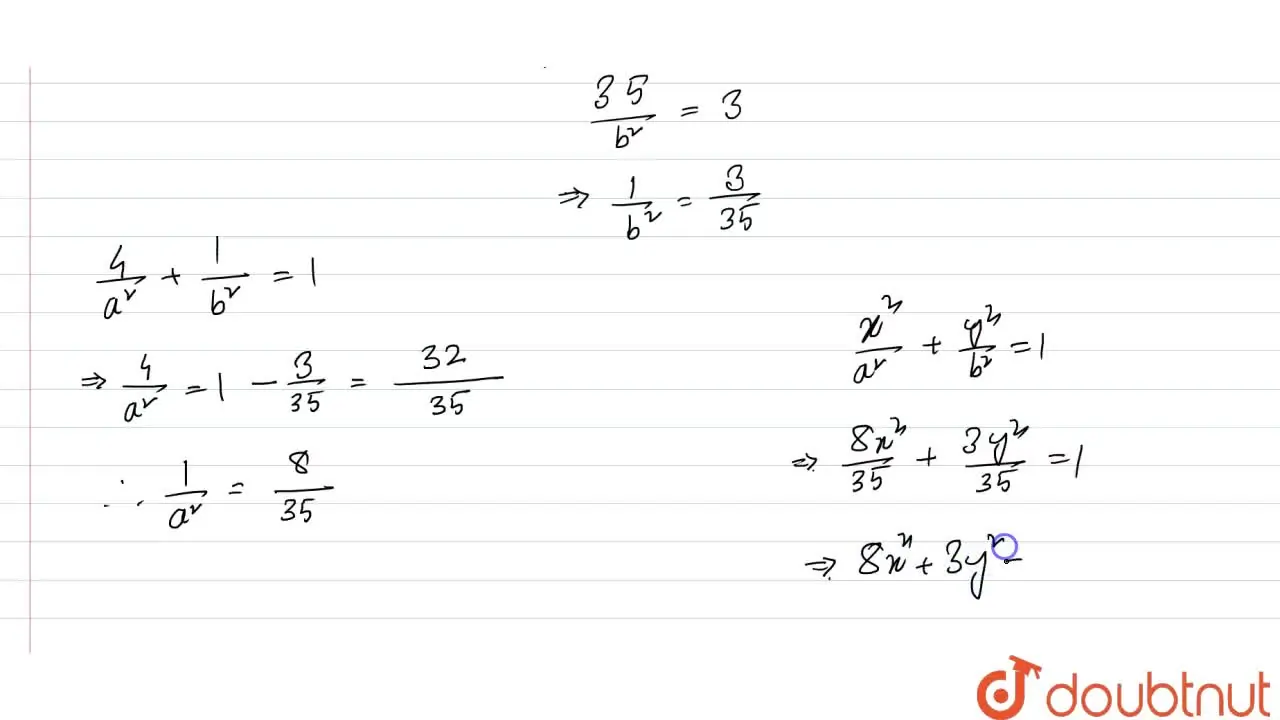 35/b² = 3
⇒ 1/b² = 3/35
4/a² + 1/b² = 1
⇒ 4/a² = 1 - 3/35 = 32/35
∴ 1/a² = 8/35
x²/a² + y²/b² = 1
⇒ 8x²/35 + 3y²/35 = 1
⇒ 8x² + 3y² -
doubtnut